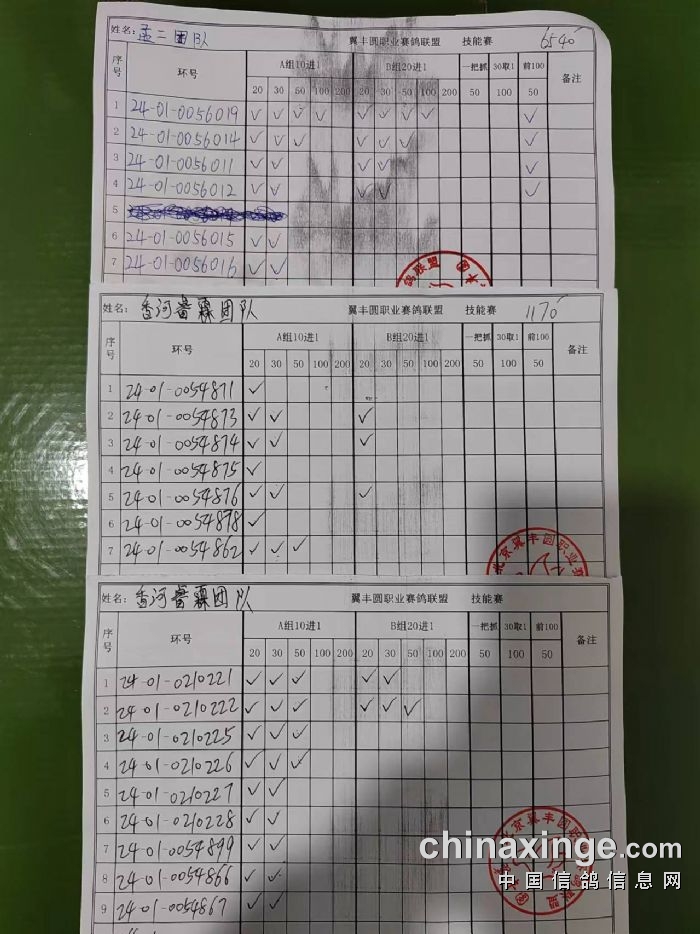 姓名：孟二团队 翼丰圆职业赛鸽联盟 技能赛 6540
序号 环号 A组10进1 B组20进1 一把抓 30取1 前100 备注
20 30 50 100 200 20 30 50 100 200 50 100 50
1 24-01-0056019 ✓ ✓ ✓ ✓ ✓ ✓ ✓ ✓ ✓
2 24-01-0056014 ✓ ✓ ✓ ✓ ✓ ✓ ✓
3 24-01-0056011 ✓ ✓ ✓ ✓ ✓
4 24-01-0056012 ✓ ✓ ✓ ✓ ✓
5
6 24-01-0056015 ✓ ✓
7 24-01-0056016 ✓ ✓
鸽联盟
姓名：香河睿霖团队 翼丰圆职业赛鸽联盟 技能赛 1170
序号 环号 A组10进1 B组20进1 一把抓 30取1 前100 备注
20 30 50 100 200 20 30 50 100 200 50 100 50
1 24-01-0054871 ✓
2 24-01-0054873 ✓ ✓ ✓
3 24-01-0054874 ✓ ✓ ✓
4 24-01-0054875 ✓
5 24-01-0054876 ✓ ✓ ✓
6 24-01-0054878 ✓
7 24-01-0054862 ✓ ✓ ✓
北京翼丰圆职业赛
姓名：香河睿霖团队 翼丰圆职业赛鸽联盟 技能赛
序号 环号 A组10进1 B组20进1 一把抓 30取1 前100 备注
20 30 50 100 200 20 30 50 100 200 50 100 50
1 24-01-0210221 ✓ ✓ ✓ ✓ ✓
2 24-01-0210222 ✓ ✓ ✓ ✓ ✓ ✓
3 24-01-0210225 ✓ ✓ ✓
4 24-01-0210226 ✓ ✓ ✓
5 24-01-0210227 ✓ ✓
6 24-01-0210228 ✓ ✓
7 24-01-0054899 ✓ ✓
8 24-01-0054866 ✓ ✓
9 24-01-0054867 ✓ ✓
北京翼丰圆职
联盟
chinaxinge.com
中国信鸽信息网